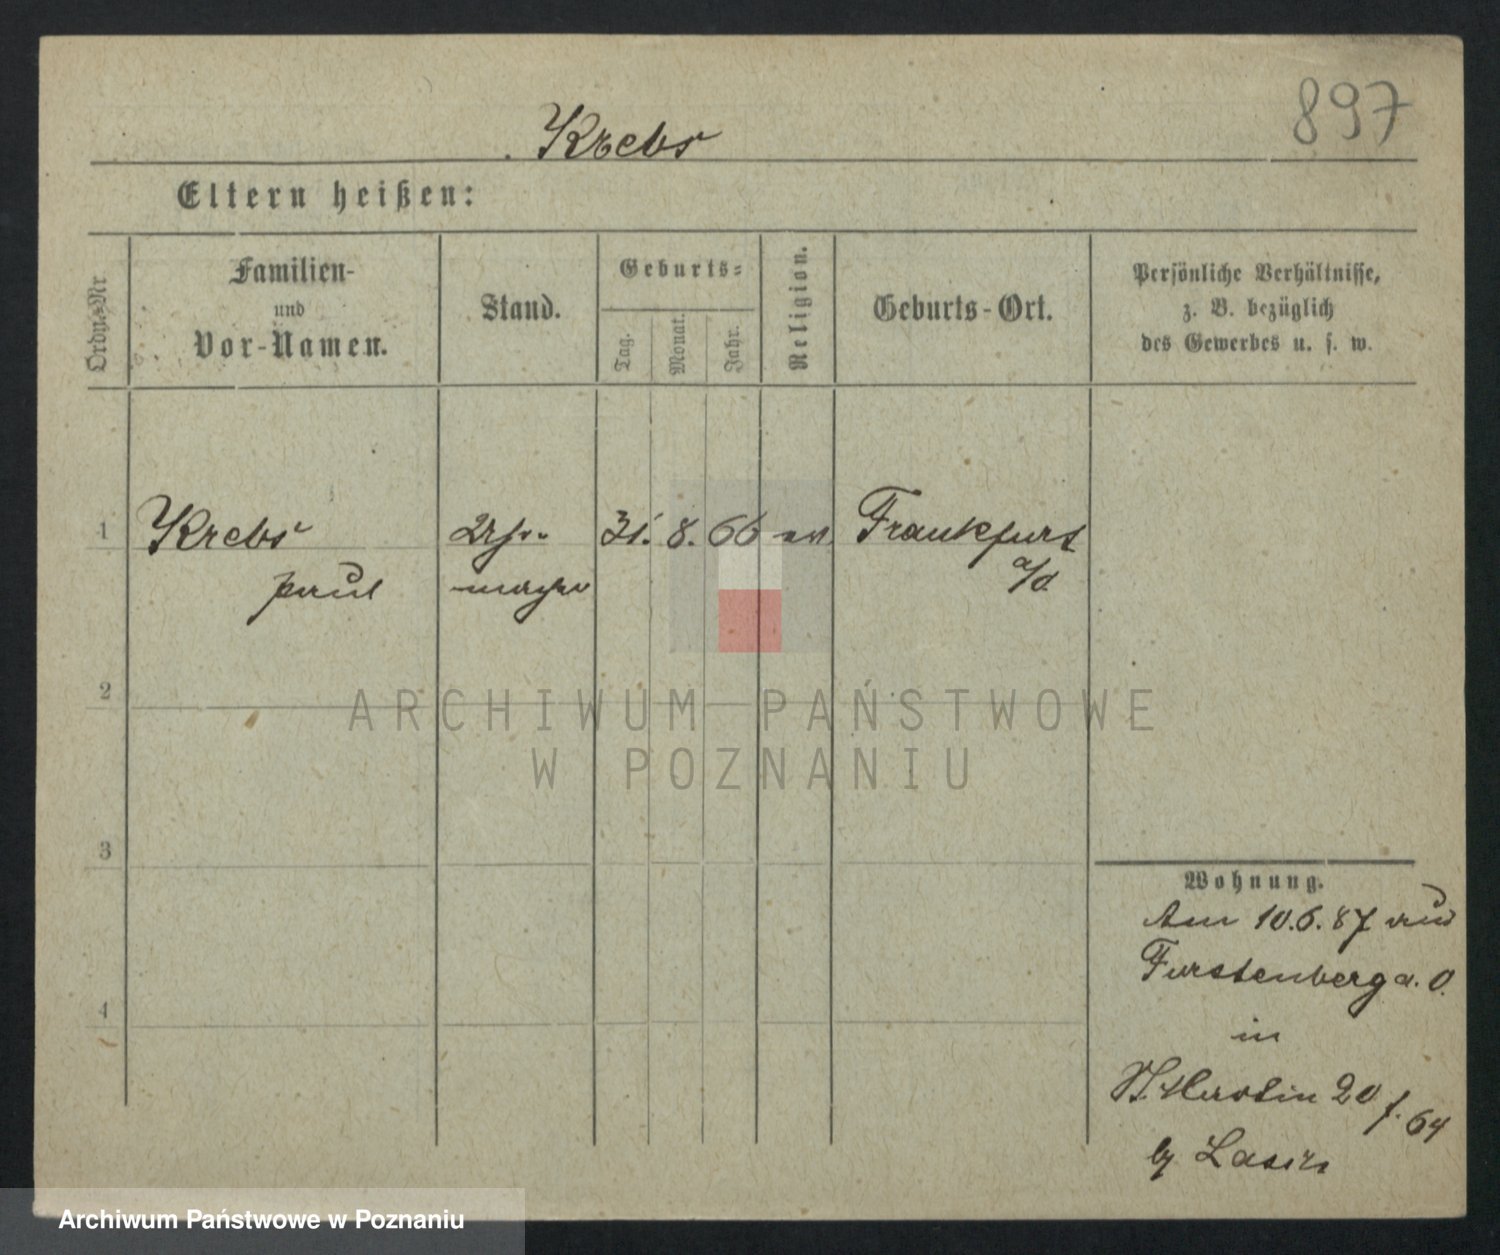 897
Krebs
Eltern heißen:
Ordn.-Nr
Familien-
und
Vor-Namen.
Stand.
Geburts-
Tag.
Monat.
Jahr.
Religion.
Geburts-Ort.
Persönliche Verhältnisse,
z. B. bezüglich
des Gewerbes u. s. w.
1 Krebs Uhr- 31. 8. 66 ev. Frankfurt
Paul macher a/d
2
ARCHIWUM PAŃSTWOWE
W POZNANIU
3
Wohnung.
Am 10.6.87 aus
Furstenberg a. O.
4
in
St. Martin 20 f. 64
by
Archiwum Państwowe w Poznaniu